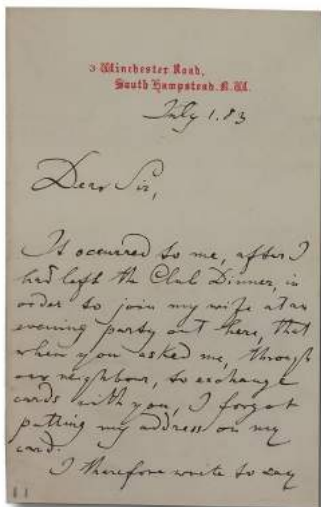 3 Winchester Road,
South Hampstead. N.W.
July 1. 83
Dear Sir,
It occurred to me, after I
had left the Club Dinner, in
order to join my wife at an
evening party out here, that
when you asked me, through
our neighbour, to exchange
cards with you, I forgot
putting my address on my
card.
I therefore write to say